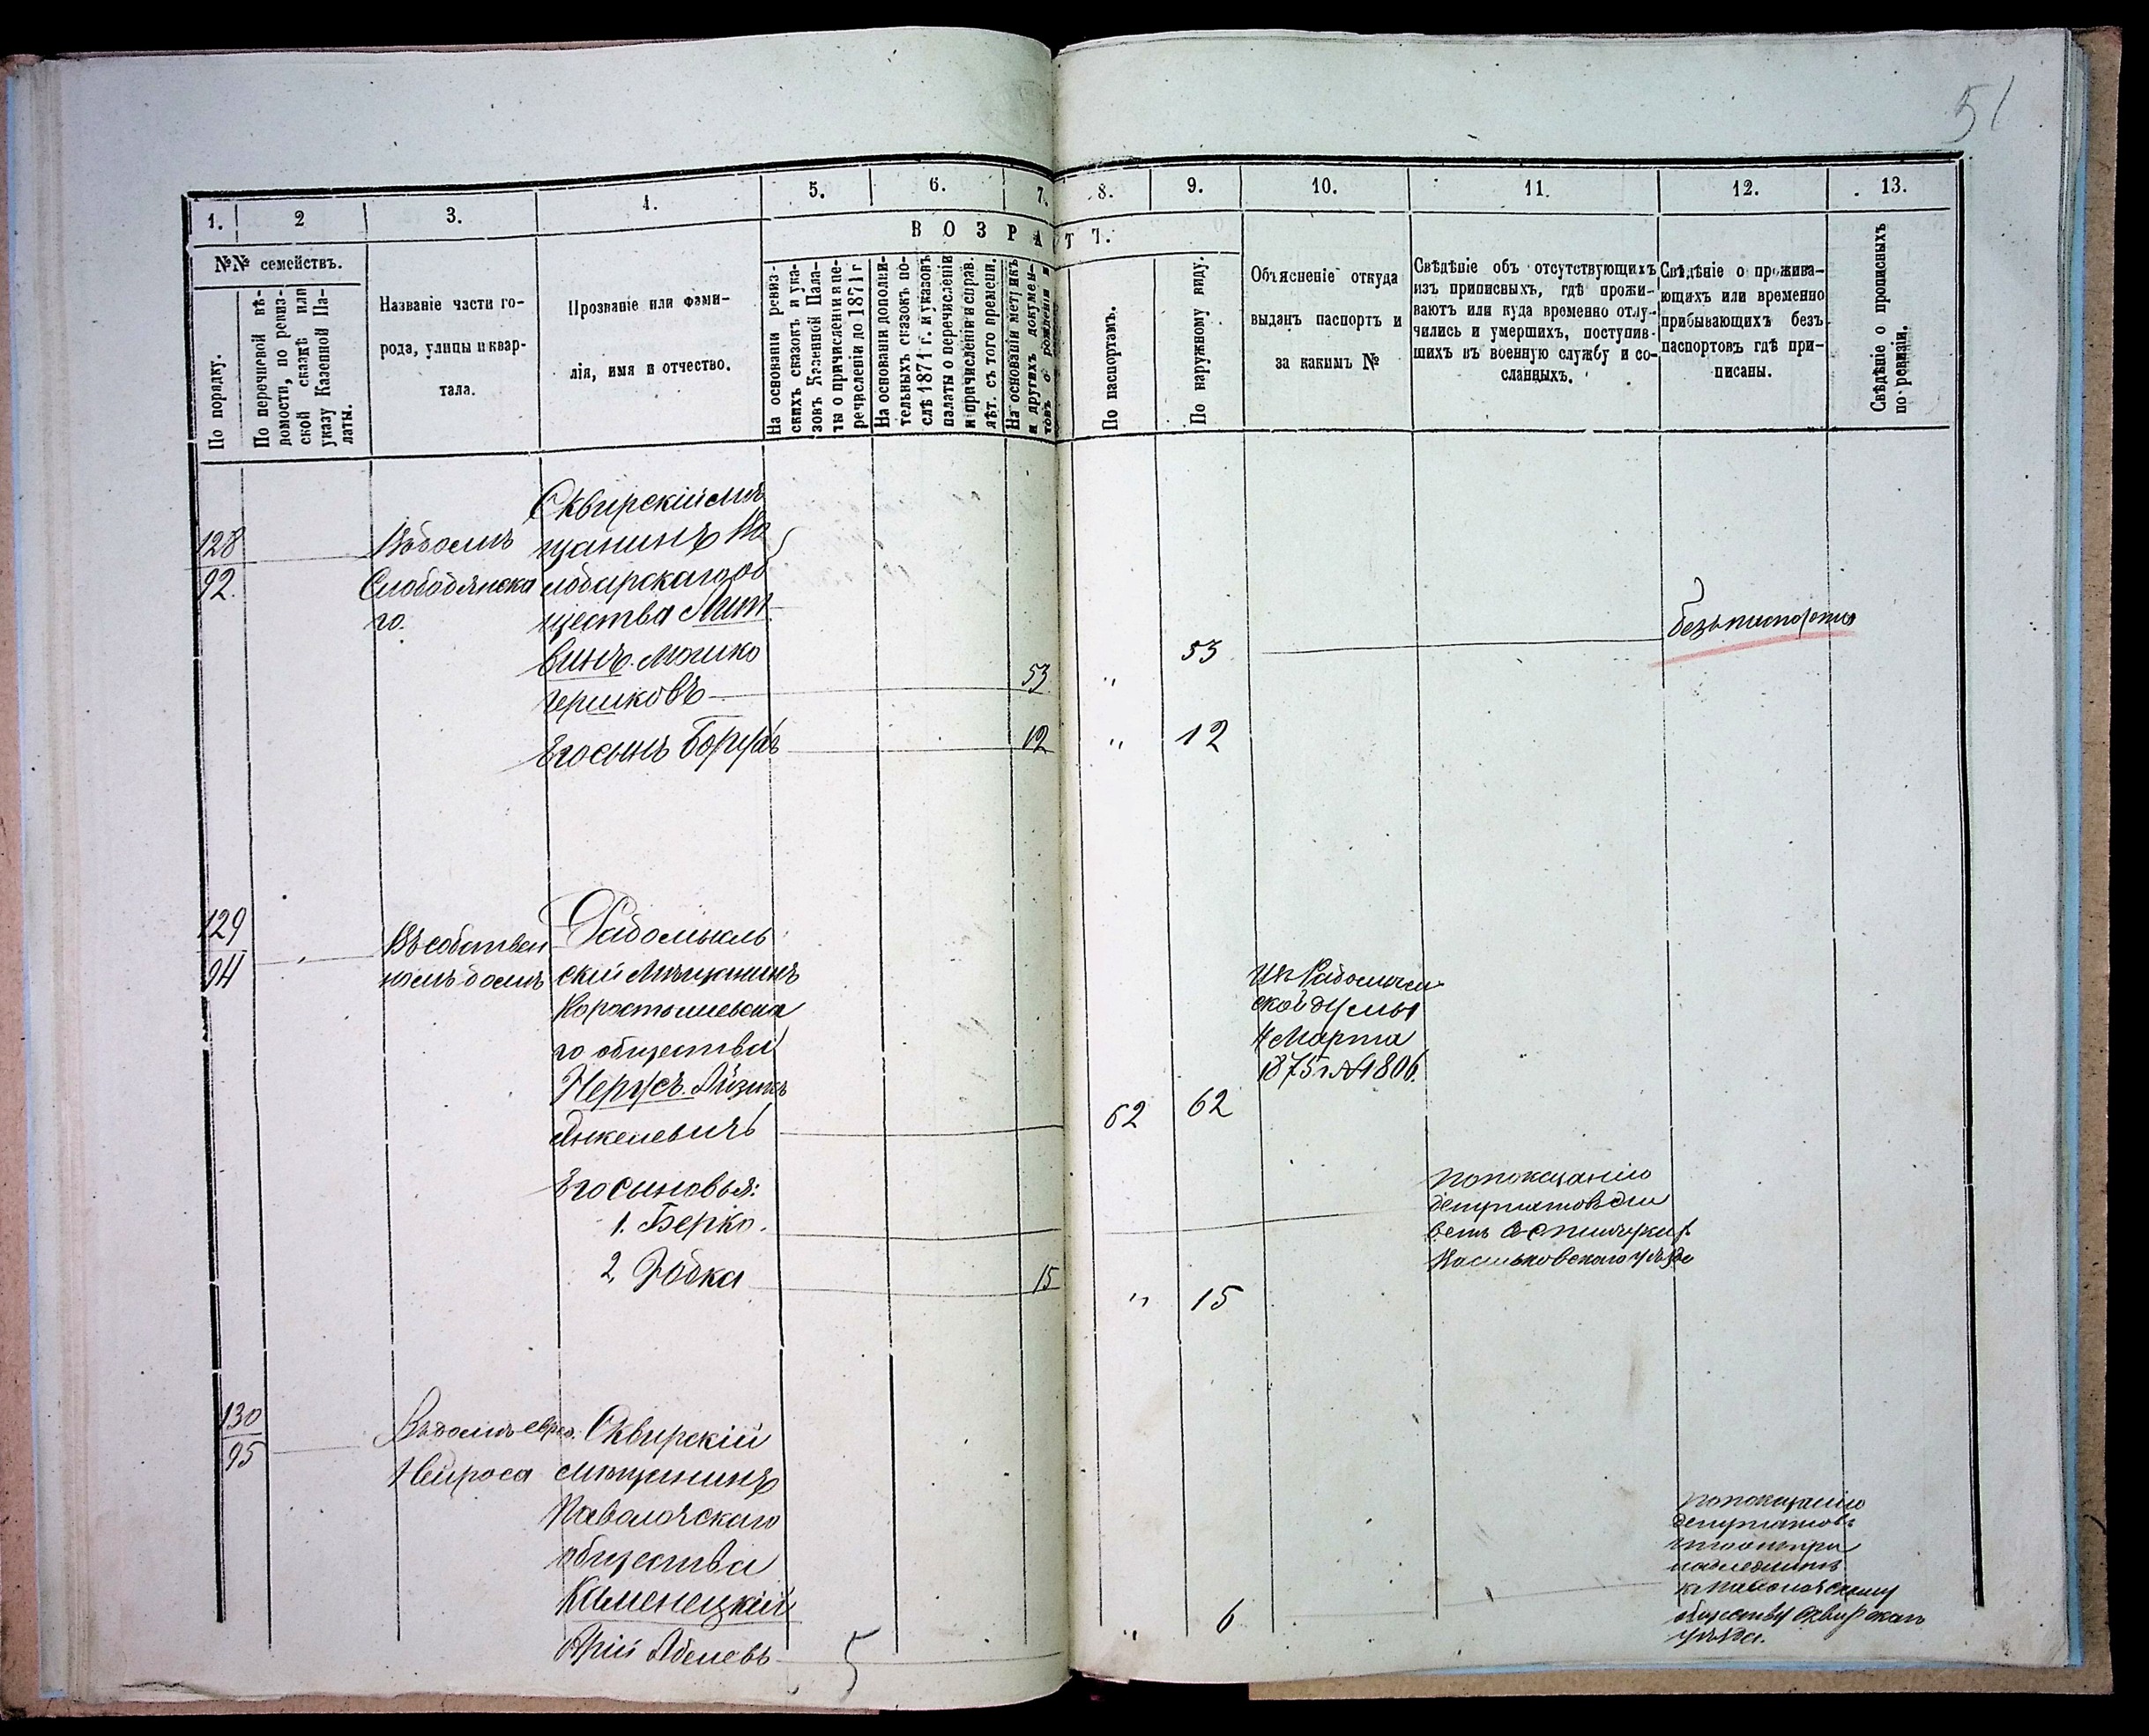 51
1.
2
3.
4.
5.
6.
7.
8.
9.
10.
11.
12.
13.
ВОЗРАСТЪ.
№№ семействъ.
По порядку.
По перечневой вѣ-
домости, по ревиз-
ской сказкѣ или
указу Казенной Па-
латы.
Названіе части го-
рода, улицы и квар-
тала.
Прозваніе или фами-
лія, имя и отчество.
На основаніи ревиз-
скихъ сказокъ и ука-
зовъ Казенной Пала-
ты о причисленіи и пе-
речисленіи до 1871 г
На основаніи дополни-
тельныхъ сказокъ по-
слѣ 1871 г. и указовъ
палаты о перечисленіи
и причисленіи и справ.
лѣт. съ того времени.
На основаніи метрикъ
и другихъ докумен-
товъ о рожденіи и
По паспортамъ.
По наружному виду.
Объясненіе откуда
выданъ паспортъ и
за какимъ №
Свѣдѣніе объ отсутствующихъ
изъ приписныхъ, гдѣ прожи-
ваютъ или куда временно отлу-
чились и умершихъ, поступив-
шихъ въ военную службу и со-
сланныхъ.
Свѣдѣніе о прожива-
ющихъ или временно
прибывающихъ безъ
паспортовъ гдѣ при-
писаны.
Свѣдѣніе о прописныхъ
по ревизіи.
128
92.
Въ домѣ
Слободянска
го.
Сквирскій мѣ
щанинъ Во
лодарскаго об
щества Лит
винъ Мошко
Гершковъ
53
"
53
безъ паспорта
Его сынъ Борухъ
12
"
12
129
94
Въ собствен
номъ домѣ
Радомысль
скій Мѣщанинъ
Коростышевска
го общества
Нерусъ Айзикъ
Янкелевичъ
62
62
Изъ Радомысль
ской думы
4 Марта
1875 г. № 1806.
Его сыновья:
1. Берко.
По показанію
депутатовъ жи
ветъ въ
Васильковскаго уѣзда
2,
15
"
15
130
95
Въ домѣ еврея
Нейроса
Сквирскій
мѣщанинъ
Паволочскаго
общества
Каменецкій
Юрій Абелевъ
5
"
6
по показанію
депутатовъ
что онъ при
надлежитъ
къ Паволочскому
обществу Сквирскаго
уѣзда.